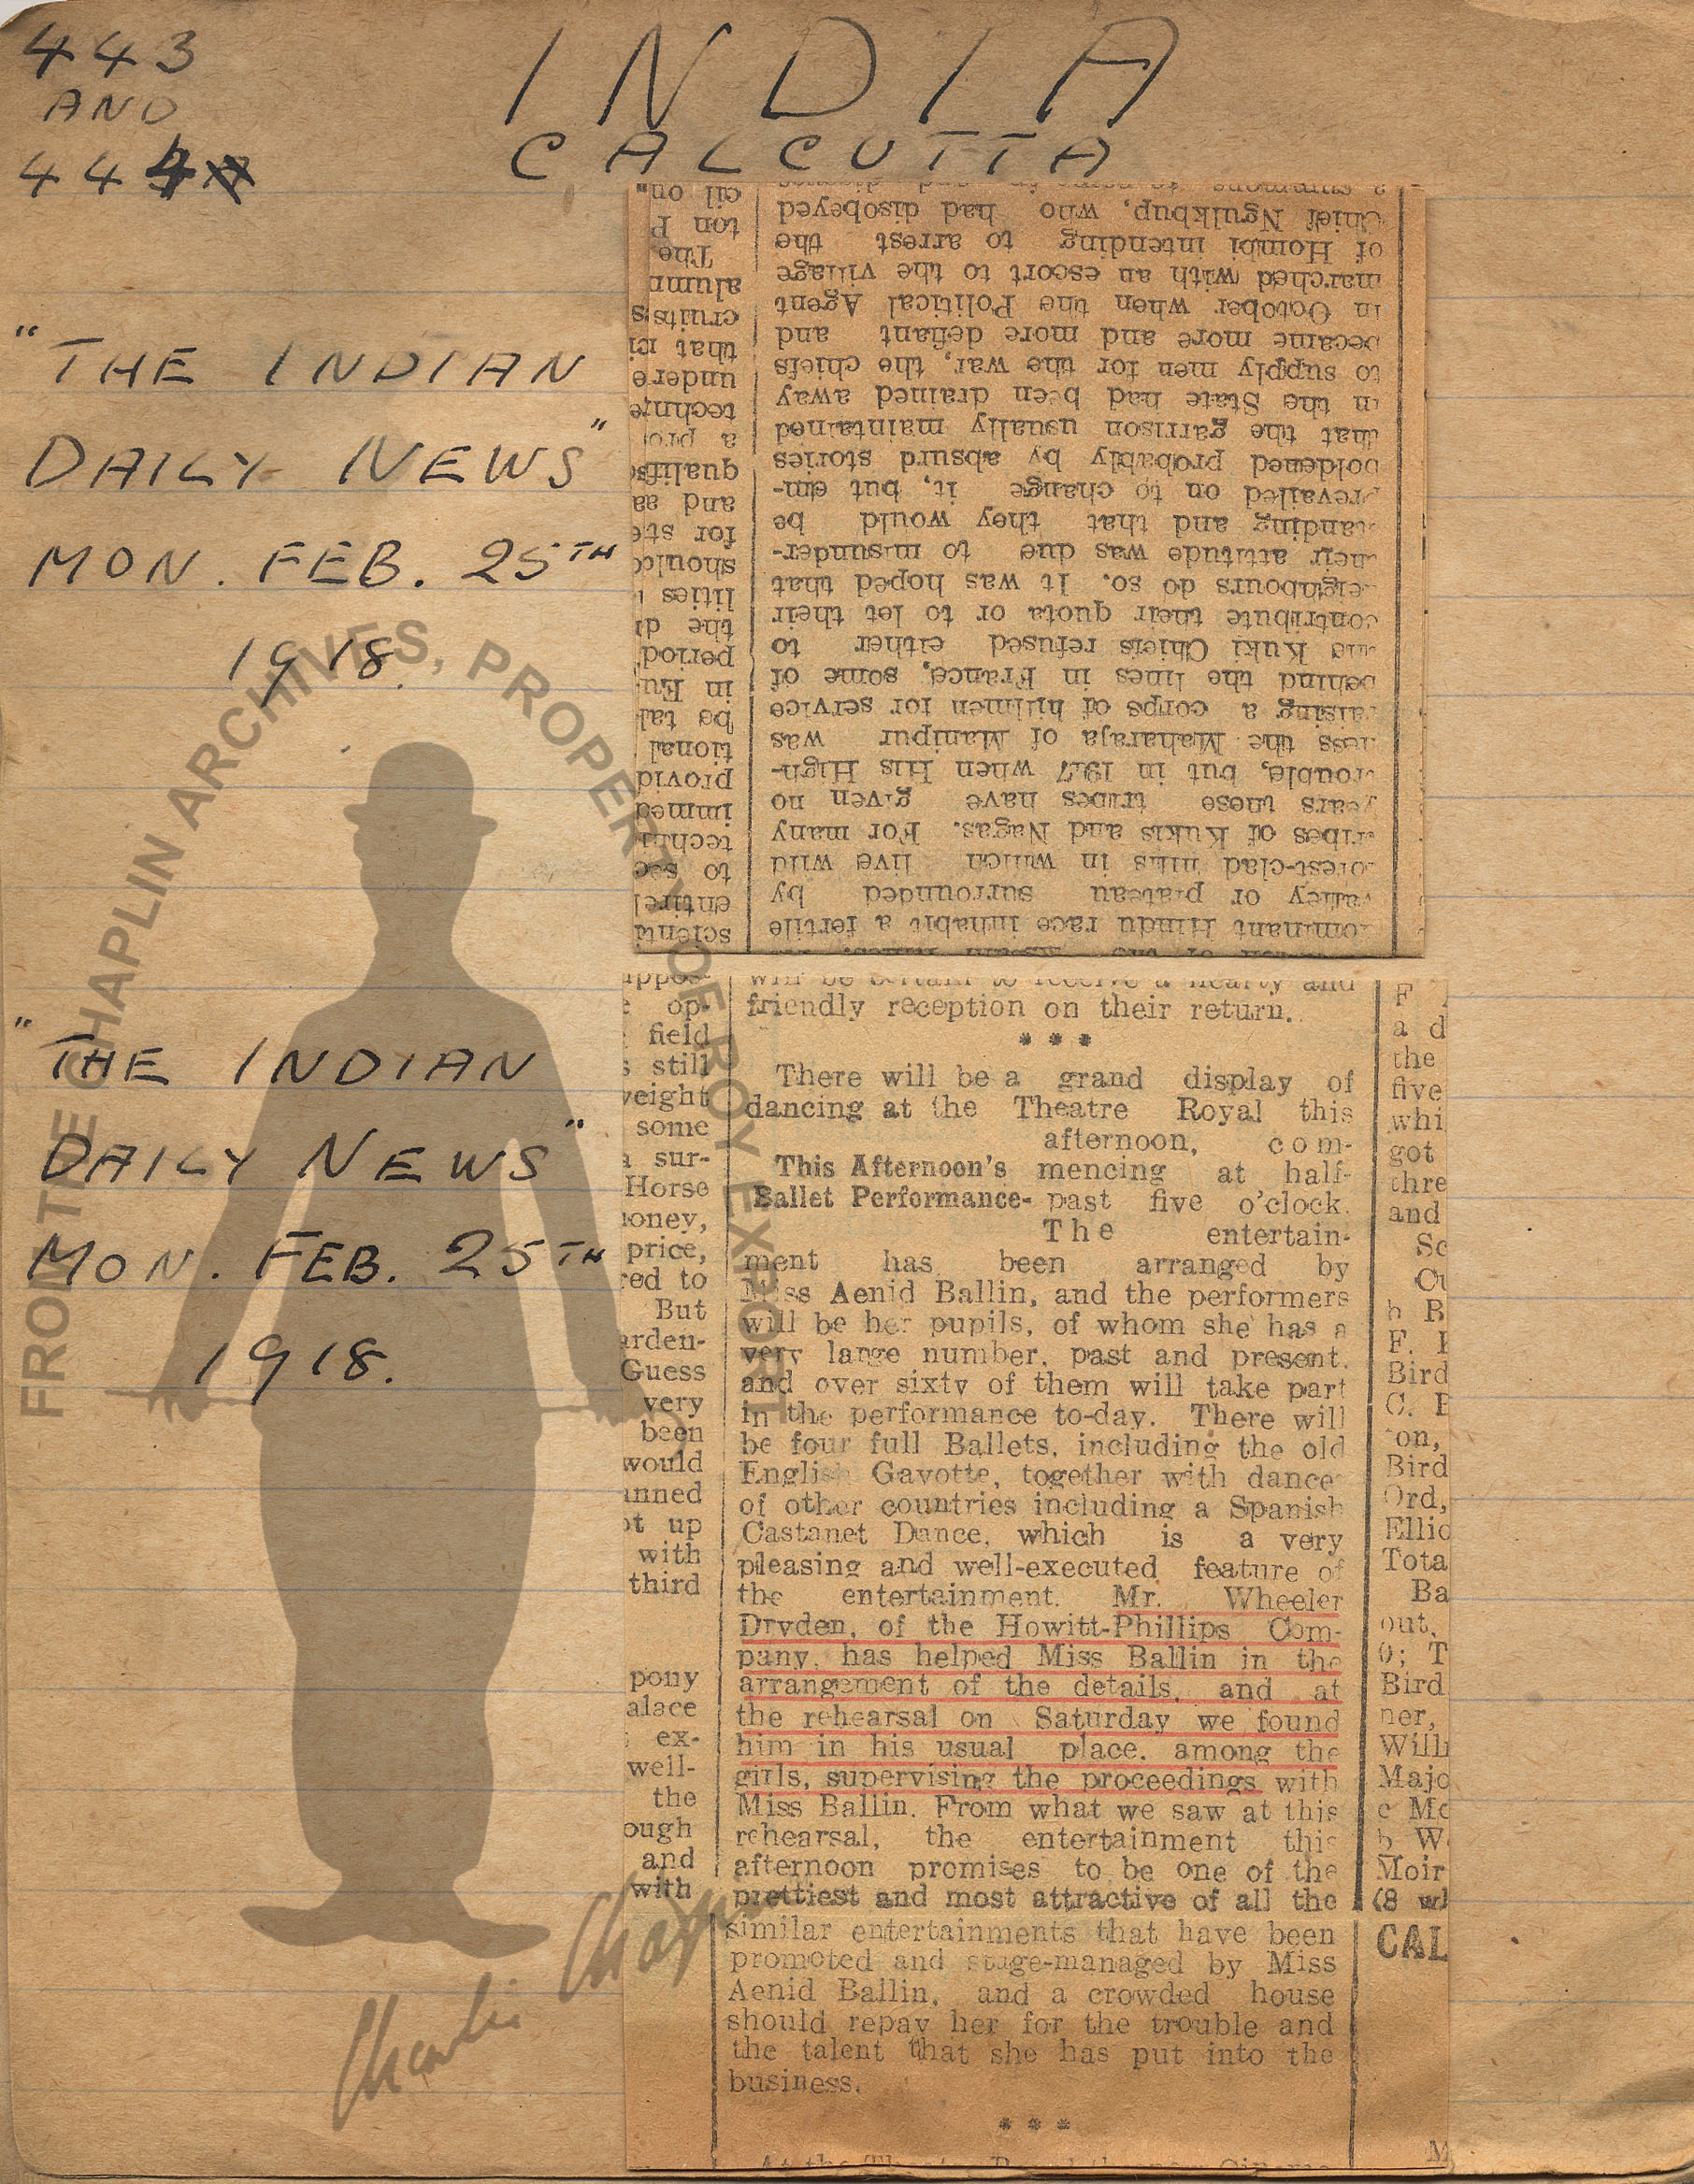 443
AND
444
INDIA
CALCUTTA
"THE INDIAN
DAILY NEWS"
MON. FEB. 25TH
1918.
ominant Hindu race inhabit a fertile
valley or plateau surrounded by
orest-clad hills in which live wild
ribes of Kukis and Nagas. For many
years these tribes have given no
rouble, but in 1917 when His High-
ness the Maharaja of Manipur was
raising a corps of hillmen for service
behind the lines in France, some of
the Kuki Chiefs refused either to
contribute their quota or to let their
neighbours do so. It was hoped that
their attitude was due to misunder-
tanding and that they would be
prevailed on to change it, but em-
boldened probably by absurd stories
that the garrison usually maintained
in the State had been drained away
to supply men for the war, the chiefs
became more and more defiant and
in October when the Political Agent
marched with an escort to the village
of Hombi intending to arrest the
Chief Ngulkbup, who had disobeyed
scienti
entirel
to sec
techni
immed
provid
tional
be tak
in Eu
period
the di
lities
should
for ste
and as
qualifi
a pro
techni
undere
that ri
cruits
alumn
The
ton P
cil on
"THE INDIAN
DAILY NEWS"
MON. FEB. 25TH
1918.
op-
field
still
veight
some
sur-
Horse
oney,
price,
red to
But
arden-
Guess
very
been
would
nned
ot up
with
third
pony
alace
ex-
well-
the
ough
and
with
will be certain to receive a hearty and
friendly reception on their return.
* * *
There will be a grand display of
dancing at the Theatre Royal this
afternoon, com-
This Afternoon's mencing at half-
Ballet Performance- past five o'clock.
The entertain-
ment has been arranged by
Miss Aenid Ballin, and the performers
will be her pupils, of whom she has a
very large number, past and present,
and over sixty of them will take part
in the performance to-day. There will
be four full Ballets, including the old
English Gavotte, together with dance
of other countries including a Spanish
Castanet Dance, which is a very
pleasing and well-executed feature of
the entertainment. Mr. Wheeler
Dryden, of the Howitt-Phillips Com-
pany, has helped Miss Ballin in the
arrangement of the details, and at
the rehearsal on Saturday we found
him in his usual place, among the
girls, supervising the proceedings with
Miss Ballin. From what we saw at this
rehearsal, the entertainment this
afternoon promises to be one of the
prettiest and most attractive of all the
similar entertainments that have been
promoted and stage-managed by Miss
Aenid Ballin, and a crowded house
should repay her for the trouble and
the talent that she has put into the
business.
* * *
F
a d
the
five
whi
got
thre
and
Sc
b B
F.
Bird
C.
on,
Bird
Ord,
Ellio
Tota
Ba
out,
0; T
Bird
ner,
Willi
Majo
c Mc
b W
Moir
(8 w
CAL
M
FROM THE CHAPLIN ARCHIVES, PROPERTY OF ROY EXPORT
Charlie Chaplin